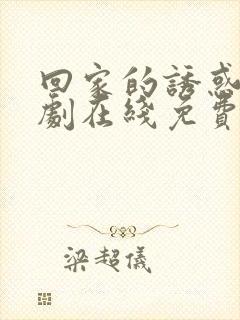 回家的誘惑
劇在綫免費
梁超儀